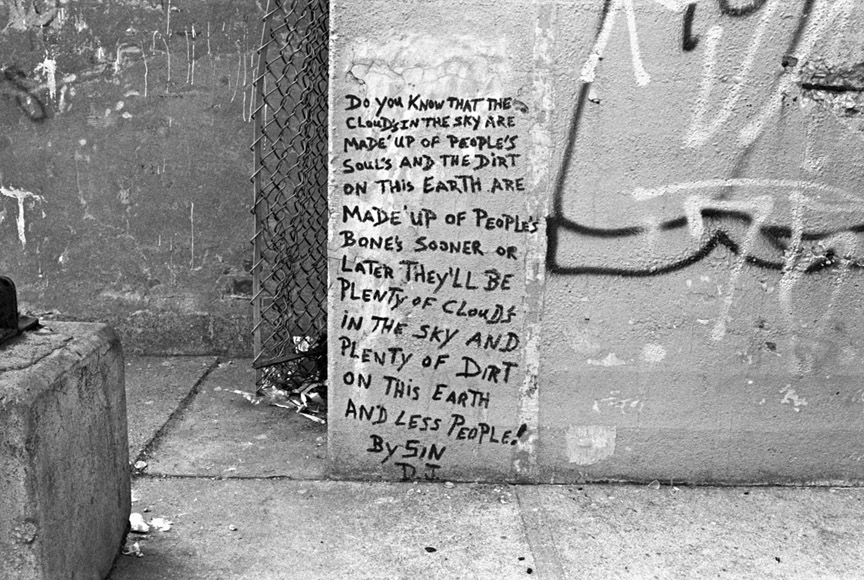 Do you Know THAT THE
CLouD's IN THE SKY ARE
MADE' UP OF PEOPLE'S
SouL's AND THE DiRT
ON THis EARTH ARE
MADE' UP OF PEOPLE'S
BONE'S SOONER OR
LATER THEY'LL BE
PLENTY OF CLouD's
iN THE SKY AND
PLENTY OF DiRT
ON THis EARTH
AND LESS PEOPLE!
By SiN
D.J.